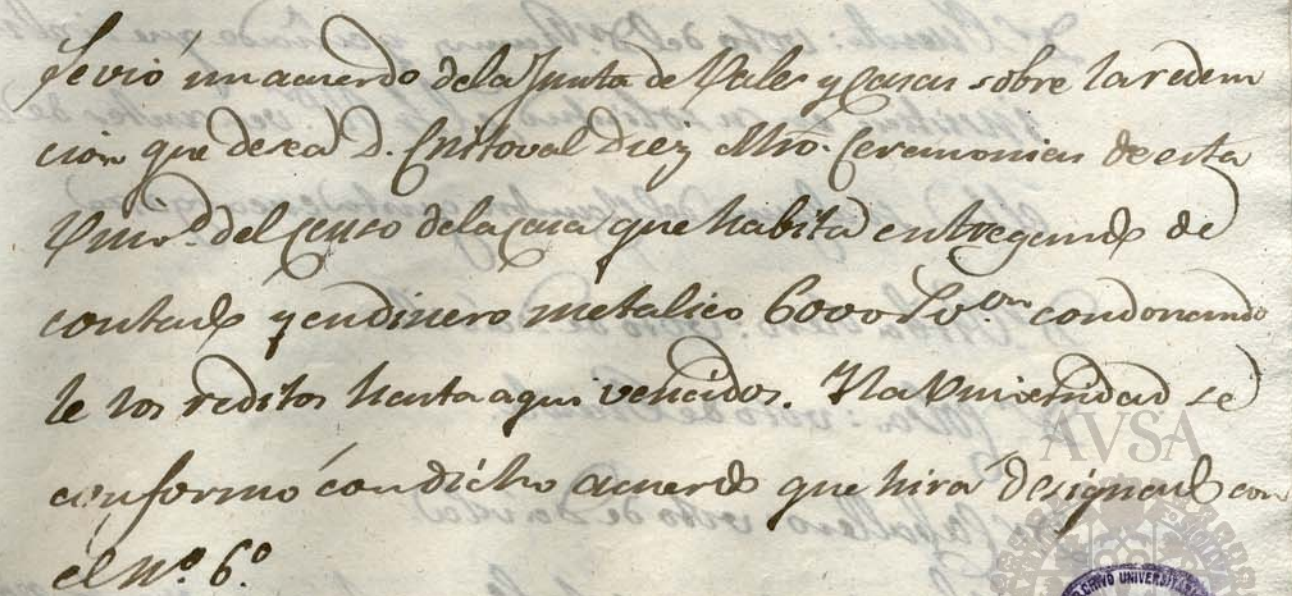 Se vió un acuerdo de la Junta de Vales y Casas sobre la reden
cion que desea D. Cristoval Diez Mrô. Ceremonias de esta
Univ.d del censo de la casa que habita entregando de
contado y en dinero metalico 6000 rv.on condonando
le los reditos hasta aqui vencidos. Y la Universidad se
conformó con dicho acuerdo que hirá designado con
el nº. 6º
AVSA
ARCHIVO UNIVERSITARIO